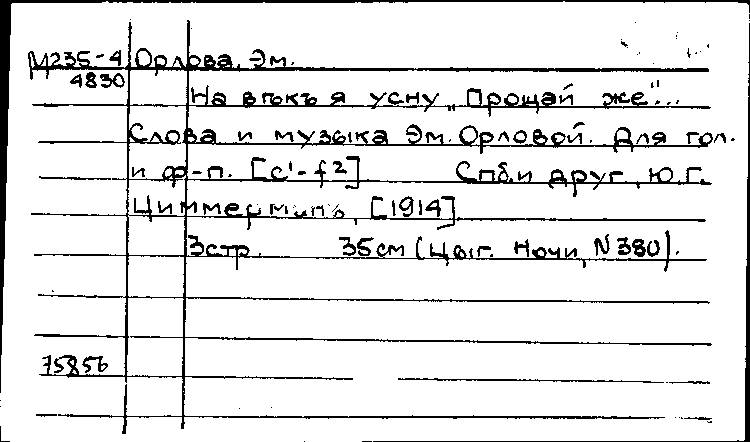 М235-4 Орлова, Эм.
4830
На вѣкъ я усну „Прощай же"...
Слова и музыка Эм. Орловой. Для гол.
и ф-п. [c¹-f²] Спб. и друг., Ю.Г.
Циммерманъ, [1914]
3стр. 35см (Цыг. Ночи, N380).
75856